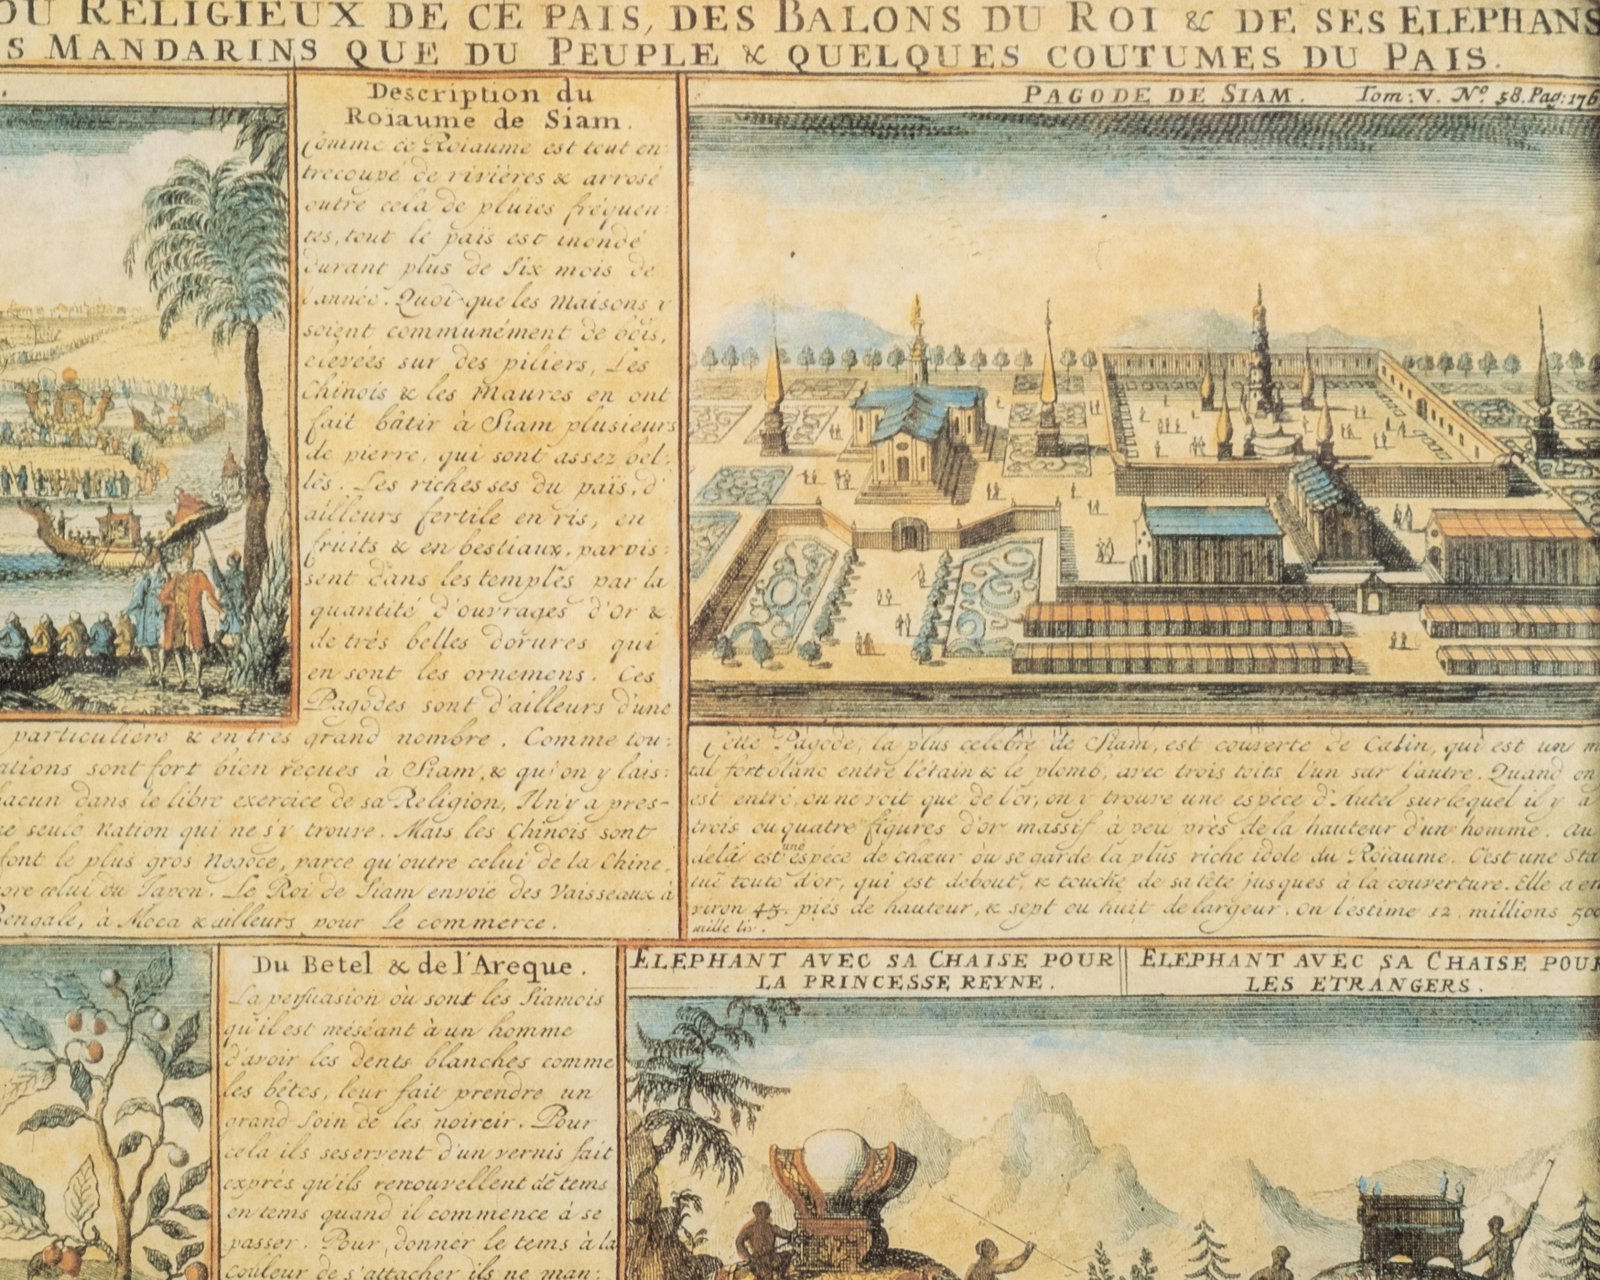 OU RELIGIEUX DE CE PAIS, DES BALONS DU ROI & DE SES ELEPHANS
S MANDARINS QUE DU PEUPLE & QUELQUES COUTUMES DU PAIS.
Description du
Roïaume de Siam.
Comme ce Roiaume est tout en
trecoupé de rivières & arrosé
outre cela de pluies fréquen:
tes, tout le païs est inondé
durant plus de six mois de
l'année. Quoi-que les maisons y
soient communément de bois,
elevées sur des piliers, Les
Chinois & les Maures en ont
fait bâtir à Siam plusieurs
de pierre, qui sont assez bel:
les. Les richesses du païs, d'
ailleurs fertile en ris, en
fruits & en bestiaux, parois:
sent dans les temples par la
quantité d'ouvrages d'or &
de très belles dorures qui
en sont les ornemens. Ces
Pagodes sont d'ailleurs d'une
particuliere & en très grand nombre. Comme tou:
ations sont fort bien recues à Siam, & qu'on y lais:
hacun dans le libre exercice de sa Religion, Il n'y a pres-
ne seule Nation qui ne s'y trouve. Mais les Chinois sont
font le plus gros Negoce, parce qu'outre celui de la Chine,
ore celui du Japon. Le Roi de Siam envoie des Vaisseaux à
Bengale, à Moca & ailleurs pour le commerce.
PAGODE DE SIAM. Tom: V. No. 58. Pag: 176
Cette Pagode, la plus celebre de Siam, est couverte de Calin, qui est un m
tal fort blanc entre l'étain & le plomb, avec trois toits l'un sur l'autre. Quand on
est entré, on ne voit que de l'or, on y trouve une espéce d'Autel sur lequel il y a
trois ou quatre figures d'or massif à peu près de la hauteur d'un homme. Au
delà est une espéce de chœur où se garde la plus riche idole du Roïaume. C'est une Sta
tuë toute d'or, qui est debout, & touche de sa tête jusques à la couverture. Elle a en
viron 45. piés de hauteur, & sept ou huit de largeur. On l'estime 12. millions 500
mille liv.
Du Betel & de l'Areque.
La persuasion où sont les Siamois
qu'il est méséant à un homme
d'avoir les dents blanches comme
les bêtes, leur fait prendre un
grand soin de les noircir. Pour
cela ils se servent d'un vernis fait
exprés qu'ils renouvellent de tems
en tems quand il commence à se
passer. Pour donner le tems à la
couleur de s'attacher ils ne man:
ELEPHANT AVEC SA CHAISE POUR
LA PRINCESSE REYNE.
ELEPHANT AVEC SA CHAISE POUR
LES ETRANGERS.